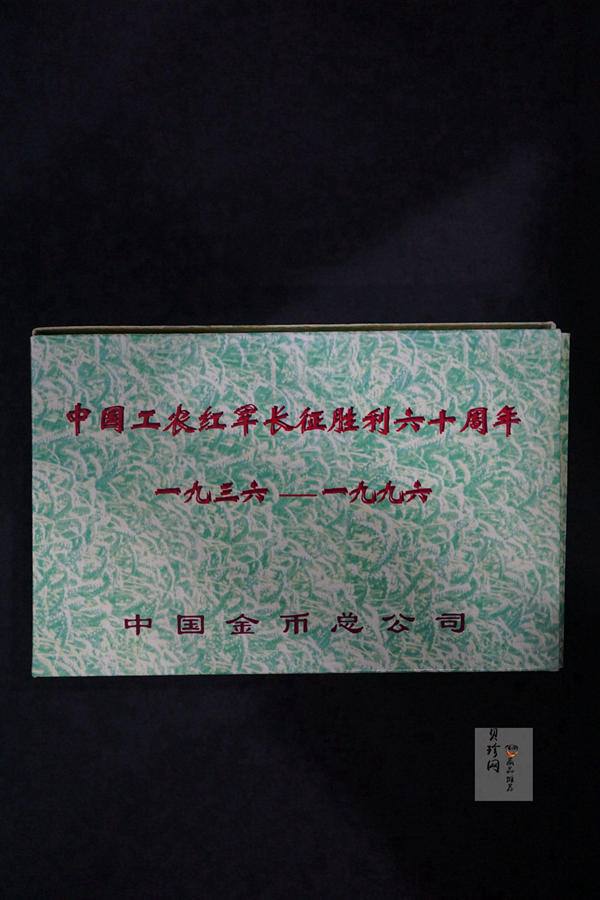 中国工农红军长征胜利六十周年
一九三六——一九九六
中国金币总公司
贝珍网
藏品推荐